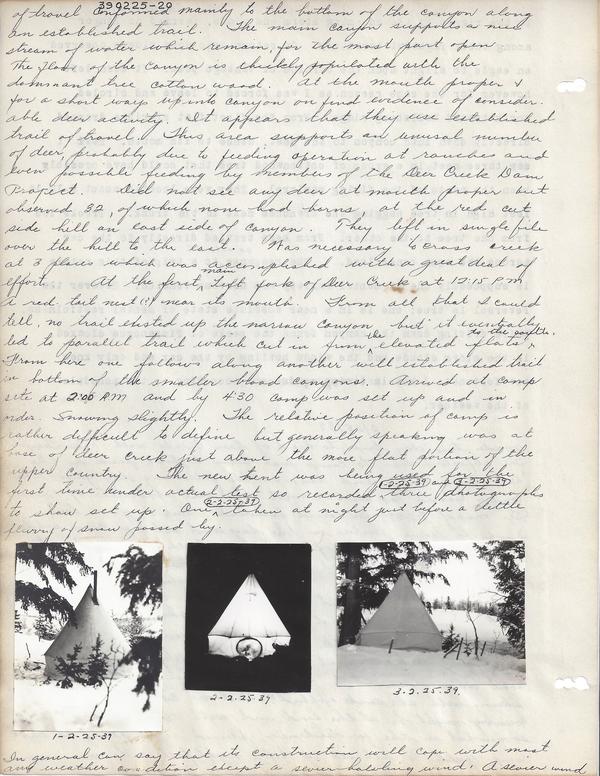 390225-29
of travel confirmed mainly to the bottom of the canyon along
an established trail. The main canyon supports a nice
stream of water which remain for the most part open
The floor of the canyon is thickly populated with the
dominant tree cotton wood. At the mouth proper &
for a short ways up into canyon on find evidence of consider.
able deer activity. It appears that they use established
trail of travel. This area supports an unusal number
of deer probably due to feeding operation at ranches and
even possible feeding by members of the Deer Creek Dam
Project. Did not see any deer at mouth proper but
observed 32, of which none had horns, at the red cut
side hill on east side of canyon. They left in single file
over the hill to the east. Was necessary to cross creek
at 3 places which was accomplished with a great deal of
effort. At the first main left fork of Deer Creek at 12:15 P.M
a red. tail nest (?) near its mouth. From all that I could
tell, no trail existed up the narrow canyon but it eventually
led to parallel trail which cut in from the elevated flats to the south.
From here one follows along another well established trail
in bottom of the smaller blood canyons. Arrived at camp
site at 2:00 P.M and by 4:30 camp was set up and in
order. Snowing slightly. The relative position of camp is
rather difficult to define but generally speaking was at
base of deer creek just above the more flat portion of the
upper country. The new tent was being used for the
first time under actual test so recorded three 1-2-25-39 and 3-2-25-39 photographs
to show set up. One 2-2-25-39 taken at night just before a little
flurry of snow passed by.
1-2-25-39
2-2-25-39
3-2-25-39.
In general can say that its construction will cope with most
any weather condition except a severe howling wind. A severe wind